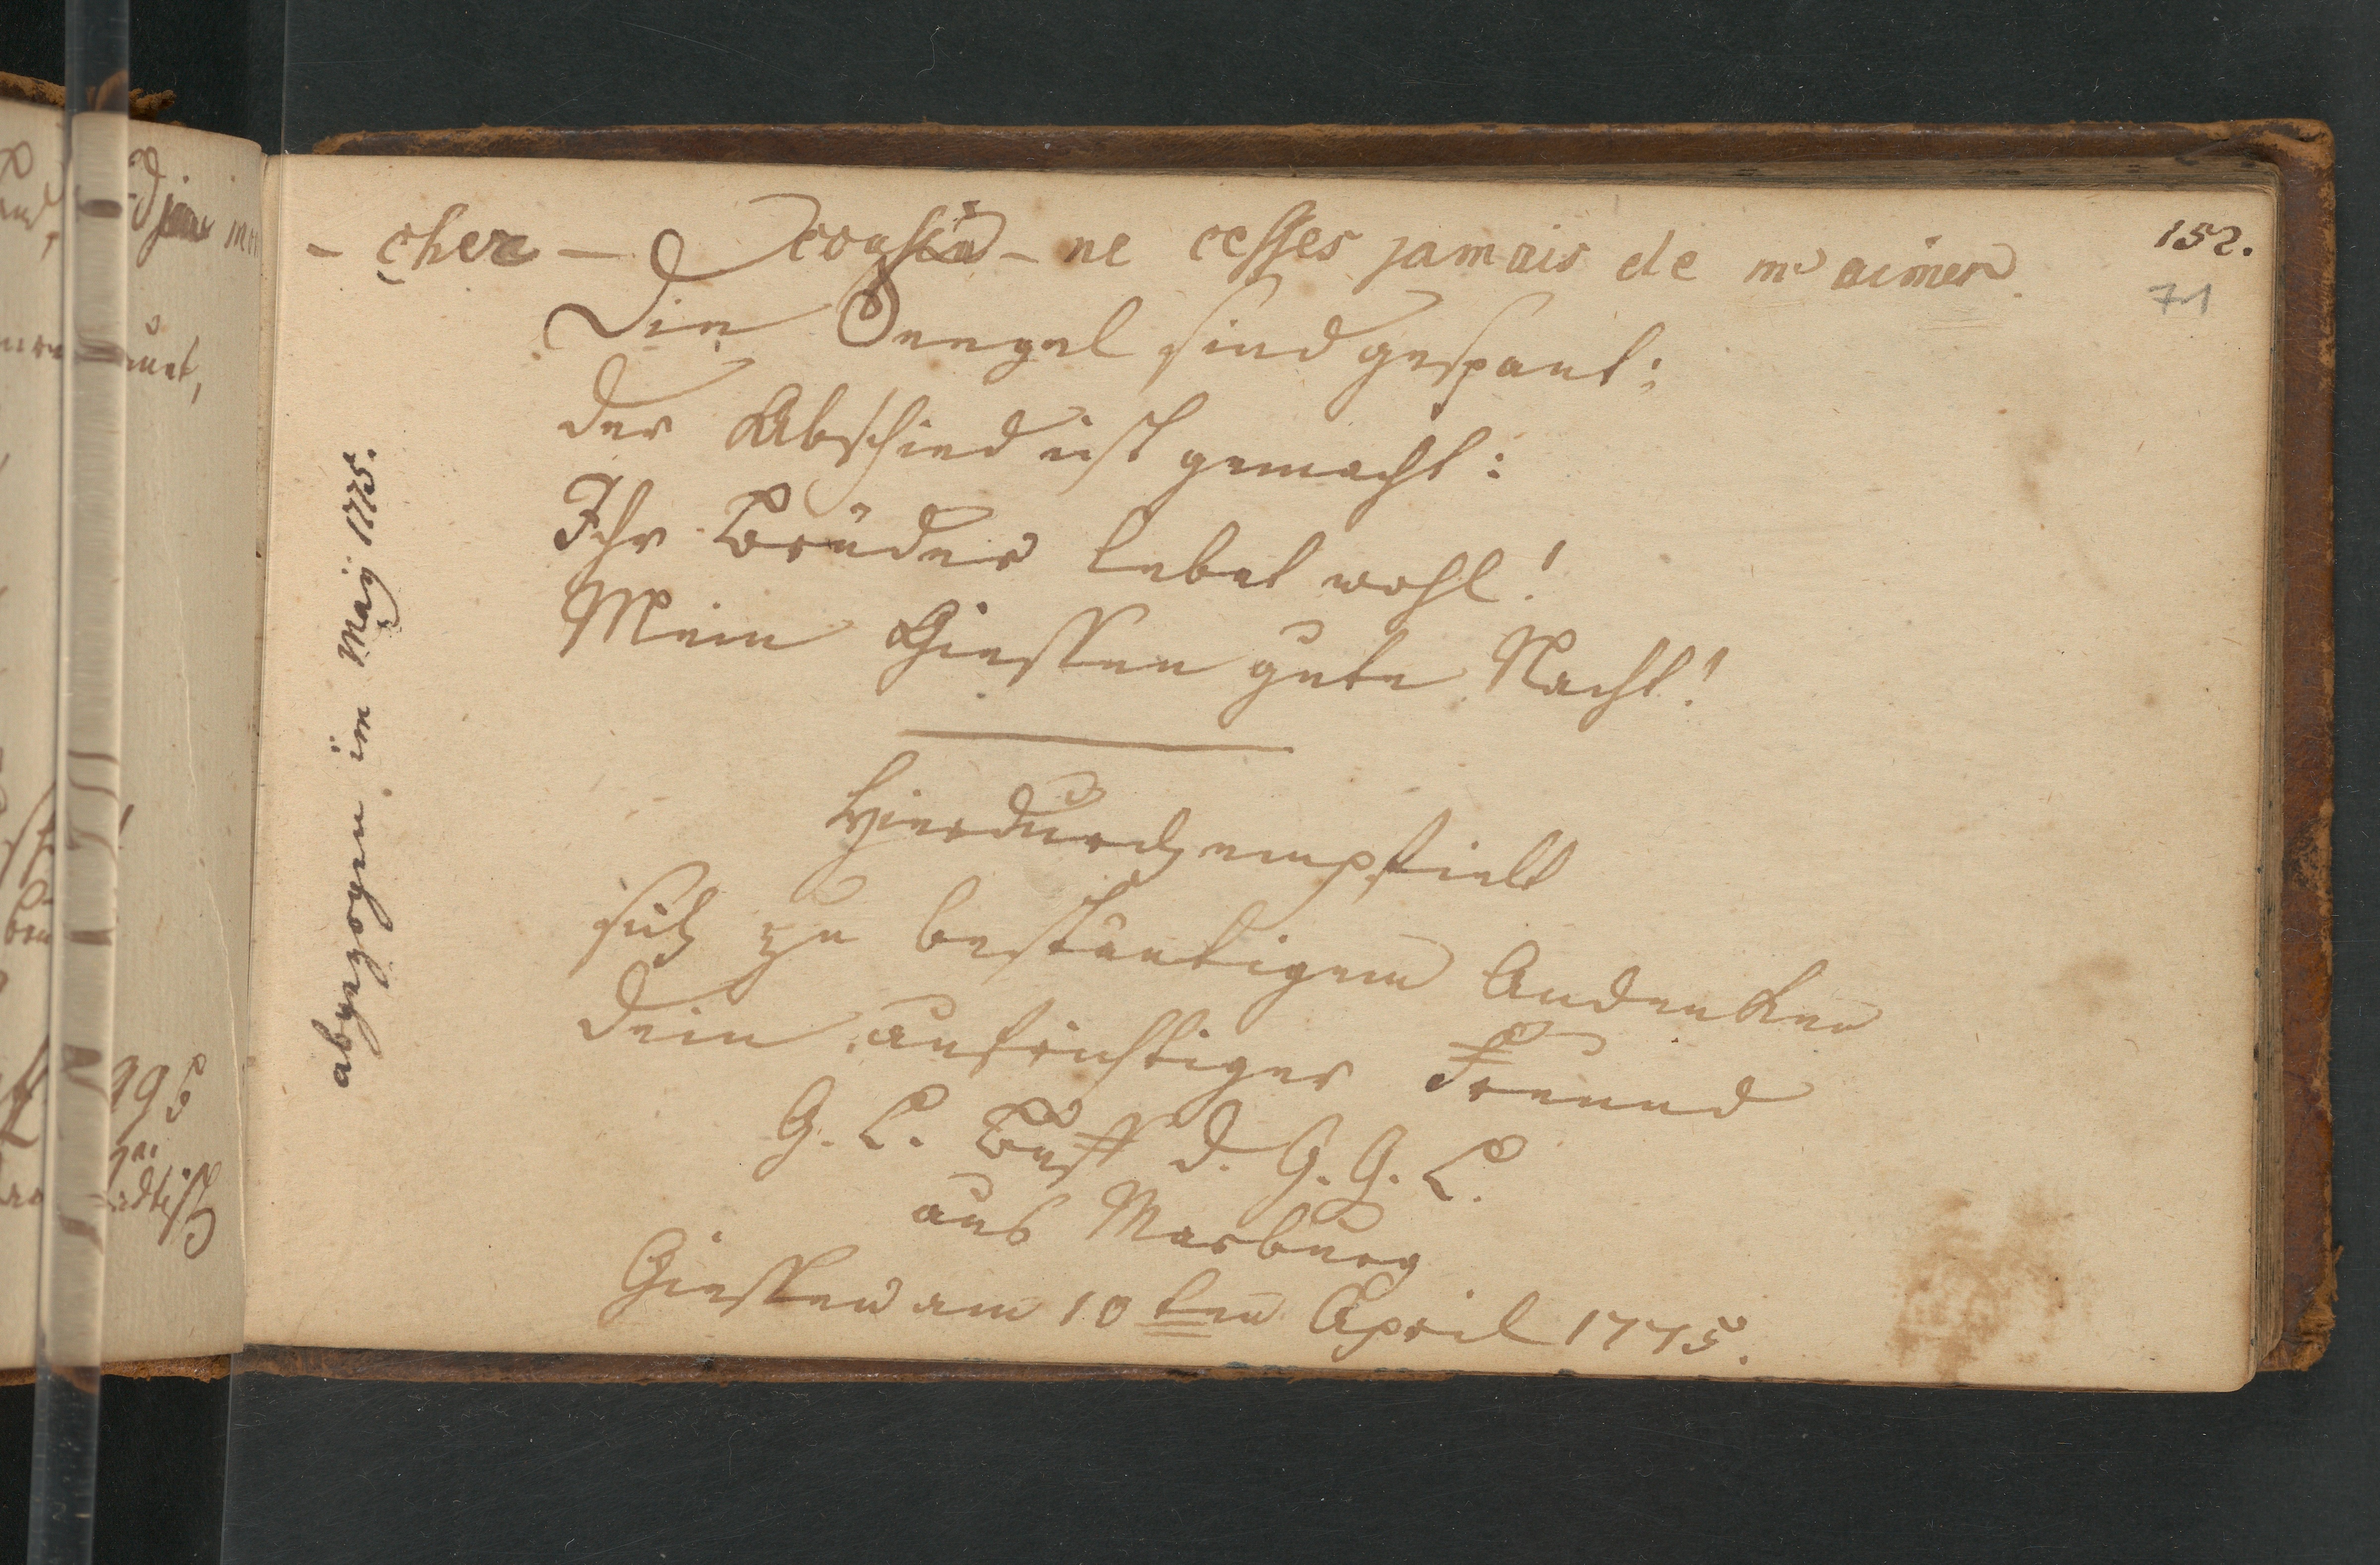 152.
71
- cher - cousin - ne cesses jamais de m'aimer.
Die Seegel sind gespant:
der Abschied ist gemacht:
Ihr Brüder lebet wohl!
Mein Giessen gute Nacht!
Hierdurch empfielt
sich zu beständigem Andenken
dein aufrichtiger Freund
G. L. Buff d. G. G. L.
aus Marburg
Giessen am 10ten April 1775.
abgezogen im May 1775.